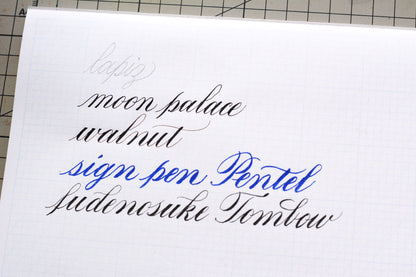 lapiz
moon palace
walnut
sign pen Pentel
fudenosuke Tombow